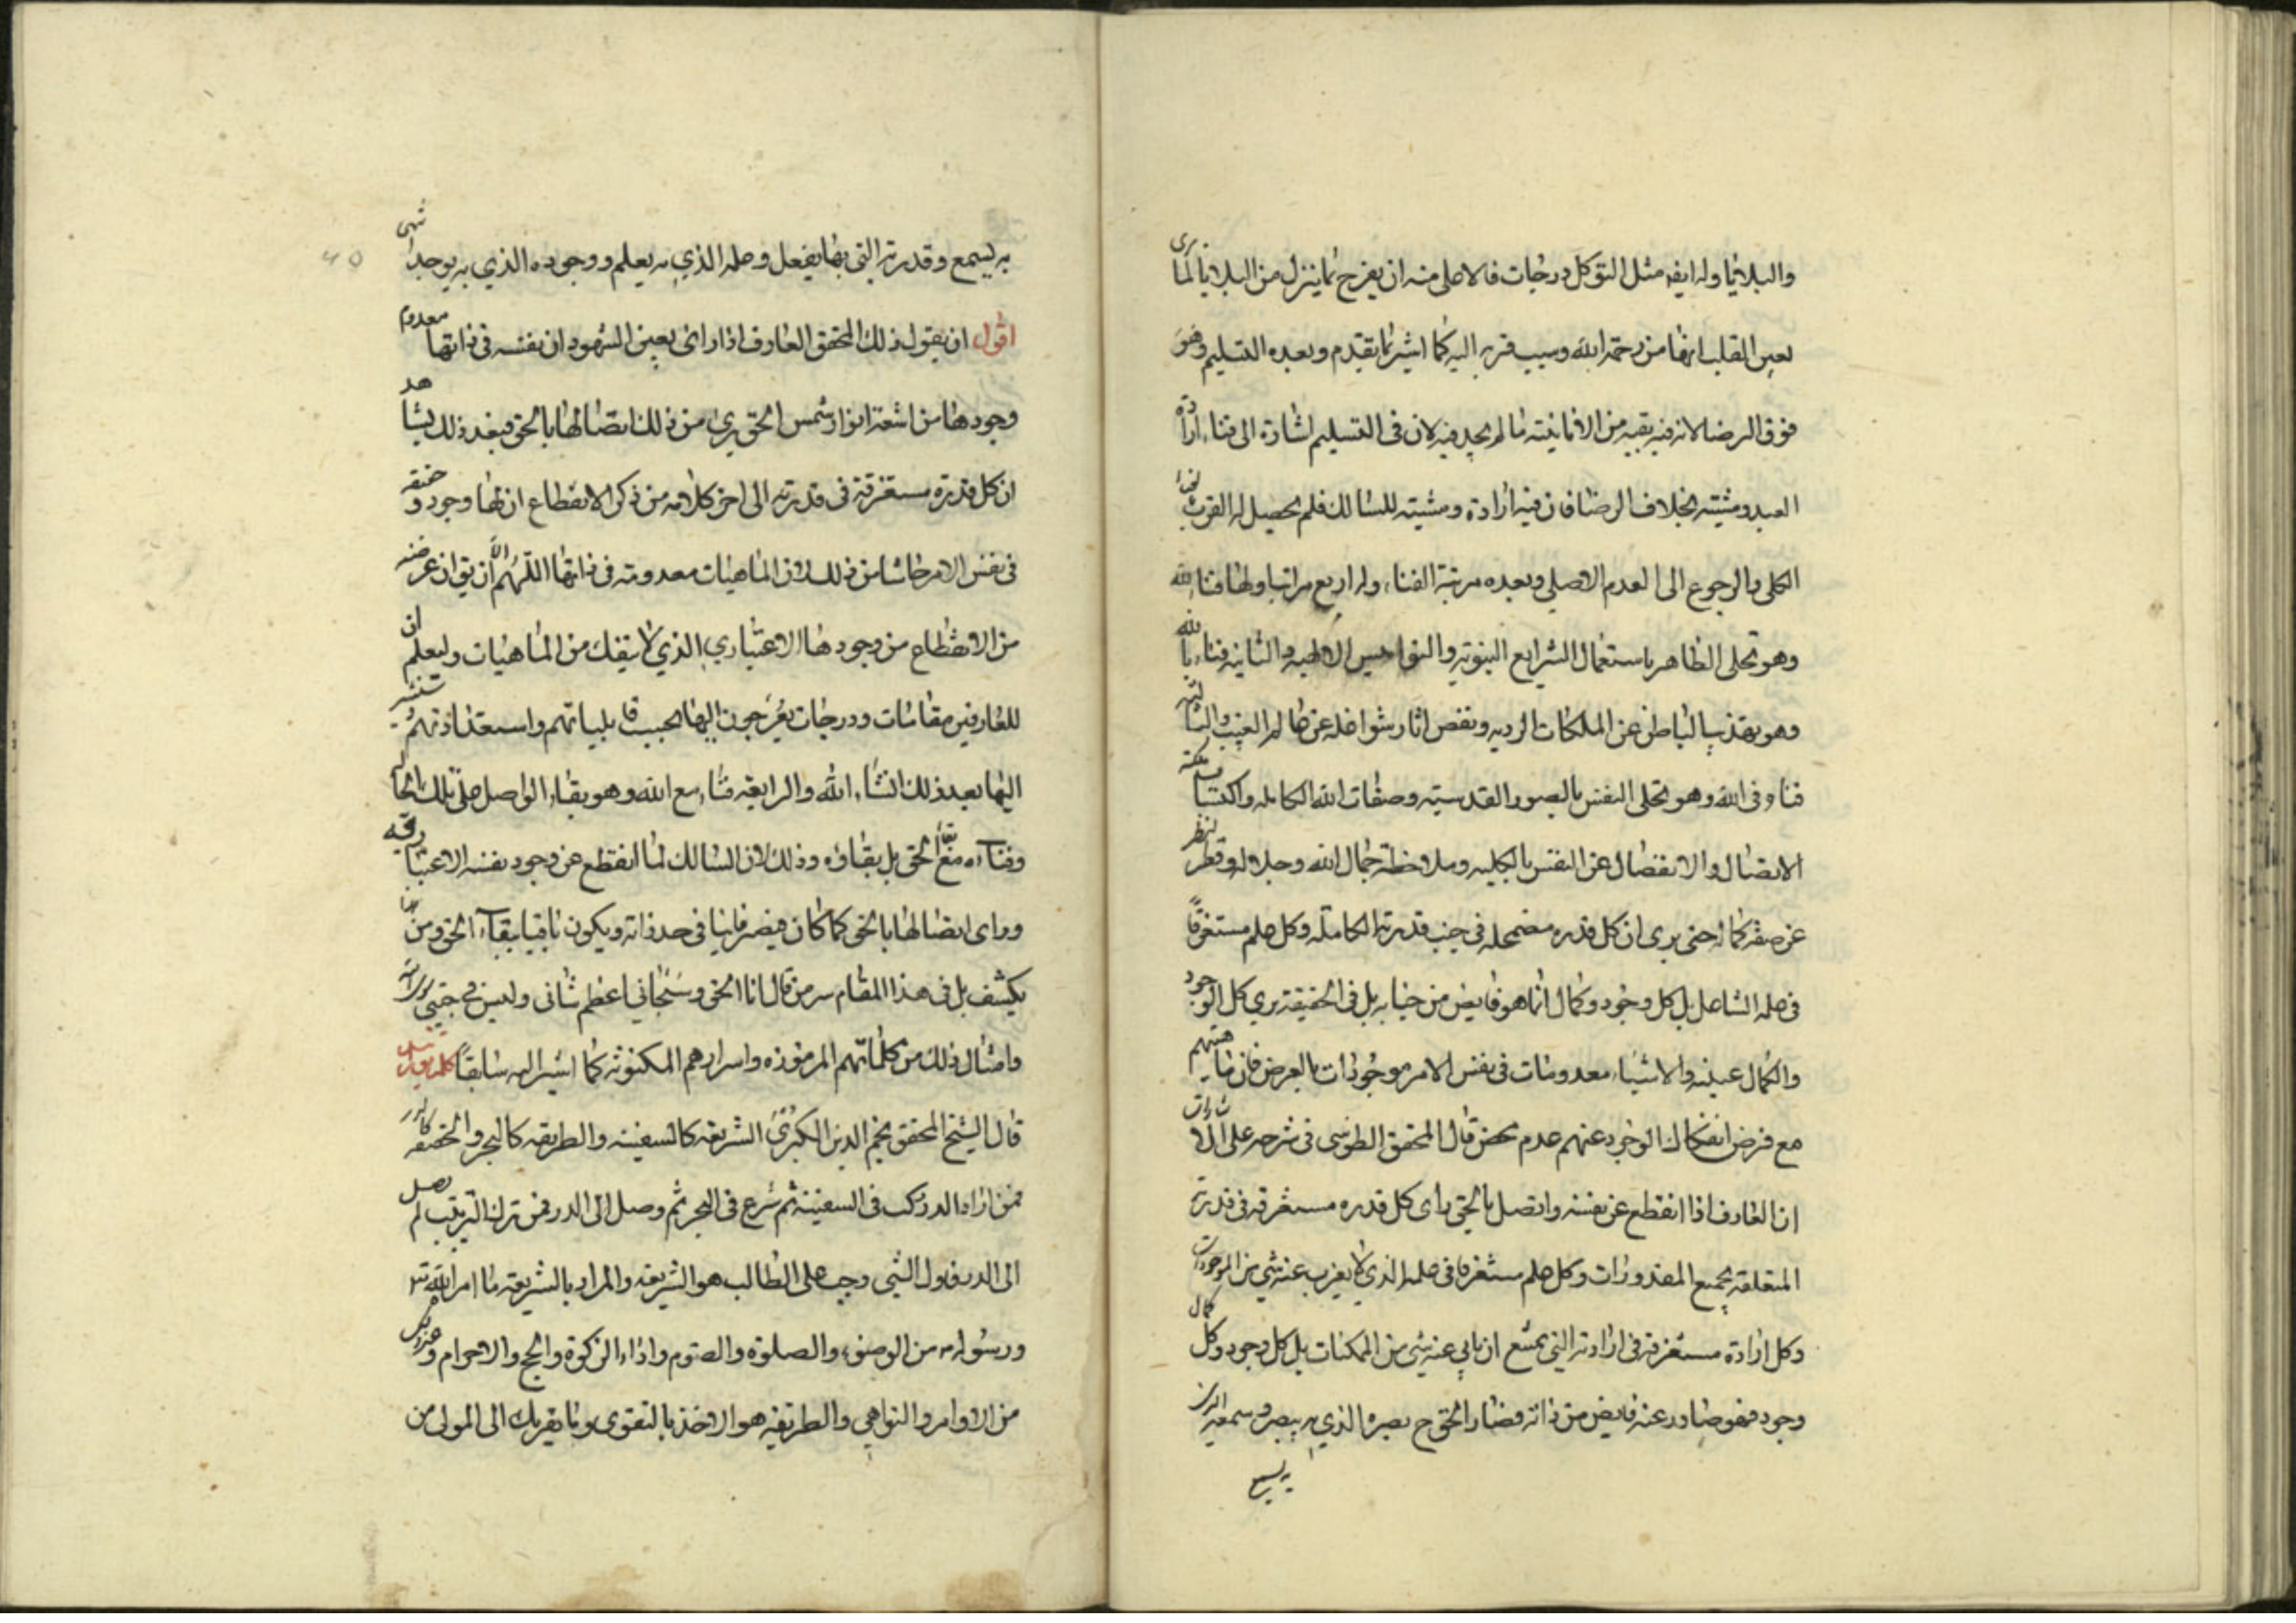 والبلايا وله ايضا مثل التوكل درجات فالاعلى منه ان يفرح بما ينزل من البلايا لما يرى
بعين القلب انها من رحمة الله وسبب قربه اليه كما اشير بما تقدم وبعده التسليم وهو
فوق الرضا لانه فيه بقيه من الانانيته ما لم يجد فيه لان فى التسليم اشارة الى فناء ارادة
العبد ومشيته بخلاف الرضا فان فيه ارادة ومشيته للسالك فلم يحصل له القرب
الكلى والرجوع الى العدم الاصلى وبعده مرتبة الفناء وله اربع مراتب اولها فناء لله
وهو تحلى الظاهر باستعمال الشرايع النبوته والنواميس الالهيه والثانيه فناء بالله
وهو تهذيب الباطن عن الملكات الرديه ونفض اثار شواغله عن عالم الغيب والثالثه
فناء فى الله وهو تحلى النفس بالصور القدسيته وصفات الله الكامله واكتسا ملكة
الاتصال والانفصال عن النفس بالكليه وملاحظة جمال الله وجلاله وقطر النظر
عن صفة كماله حتى يرى ان كل قدره مضمحله فى جنب قدرته الكامله وكل علم مستغرقا
فى علمه الشامل بل كل وجود وكمال انما هو فايض من جنابه بل فى الحقيقة يرى كل الوجود
والكمال عينه والاشياء معدومات فى نفس الامر موجودات بالعرض فان ماهيتهم
مع فرض انفكاك الوجود عنهم عدم محض قال المحقق الطوسى فى شرحه على الاشارات
ان العارف اذا انقطع عن نفسه واتصل بالحق راى كل قدره مستغرقه فى قدرته
المتعلقه بجميع المقدورات وكل علم مستغرقا فى علمه الذى لا يعزب عنه شئ من الموجودات
وكل ارادة مستغرقه فى ارادته التى يمتنع ان يابى عنه شئ من الممكنات بل كل وجود وكل كمال
وجود فهو صادر عنه فايض من ذاته فصار الحق ح بصره الذى به يبصر وسمعه الذى
به يسمع
به يسمع وقدرته التى بها يفعل وعلمه الذى به يعلم ووجوده الذى به يوجد انتهى
اقول ان يقول ذلك المحقق العارف اذا راى بعين الشهود ان نفسه فى ذاتها معدوم
وجودها من اشعة انوار شمس الحق يرى من ذلك اتصالها بالحق فبعد ذلك يشاهد
ان كل قدرة مستغرقة فى قدرته الى اخر كلامه من ذكر الانقطاع ان لها وجود و حقيقه
فى نفس الامر حاشا من ذلك لان الماهيات معدومته فى ذاتها اللهم الا ان يق ان غرضه
من الانقطاع من وجودها الاعتبارى الذى لا ينفك من الماهيات وليعلم ان
للعارفين مقامات ودرجات يعرجون اليها بحسب قابلياتهم واستعداداتهم
اليها بعد ذلك انشاء الله والرابعة فناء مع الله وهو بقاء الواصل على تلك الحاله
وفناءه مع الحق بل بقاؤه وذلك لان السالك لما انقطع عن وجود نفسه الاعتبارقيه
وراى اتصالها بالحق كما كان فيصر فانيا فى حد ذاته ويكون باقيا ببقاء الحق ومن هنا
يكشف بل فى هذا المقام سر من قال انا الحق وسبحانى ما اعظم شانى وليس فى جبتى سوى الله
وامثال ذلك من كلماتهم المرموزه واسرارهم المكنونه كما اشير اليه سابقا
قال الشيخ المحقق نجم الدين الكبرى الشريعه كالسفينه والطريقه كالبحر والحقيقه كالدر
فمن اراد الدر ركب فى السفينة ثم شرع فى البحر ثم وصل الى الدر فمن ترك الترتيب لم يصل
الى الدر فاول الشئ وجب على الطالب هو الشريعه والمراد بالشريعة ما امر الله تع
ورسوله من الوضوء والصلوة والصوم واداء الزكوة والحج والاحرام و
من الاوامر والنواهى والطريقه هو الاخذ بالتقوى وما يقربك الى المولى من